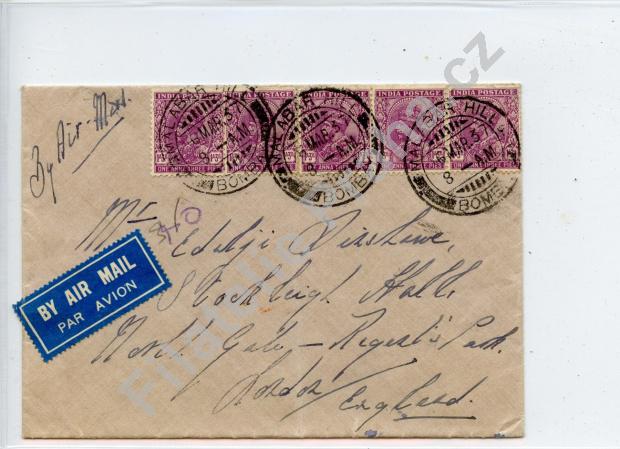 By Air Mail
INDIA POSTAGE INDIA POSTAGE INDIA POSTAGE INDIA POSTAGE INDIA POSTAGE
ONE ANNA THREE PIES
MALABAR HILL
6 MAR 37
8 AM
BOMBAY
MALABAR HILL
6 MAR 37
8 AM
BOMBAY
MALABAR HILL
6 MAR 37
8 AM
BOMBAY
Mr Edulji Dinshaw,
Stockleigh Hall
North Gate - Regent's Park
London
England.
BY AIR MAIL
PAR AVION